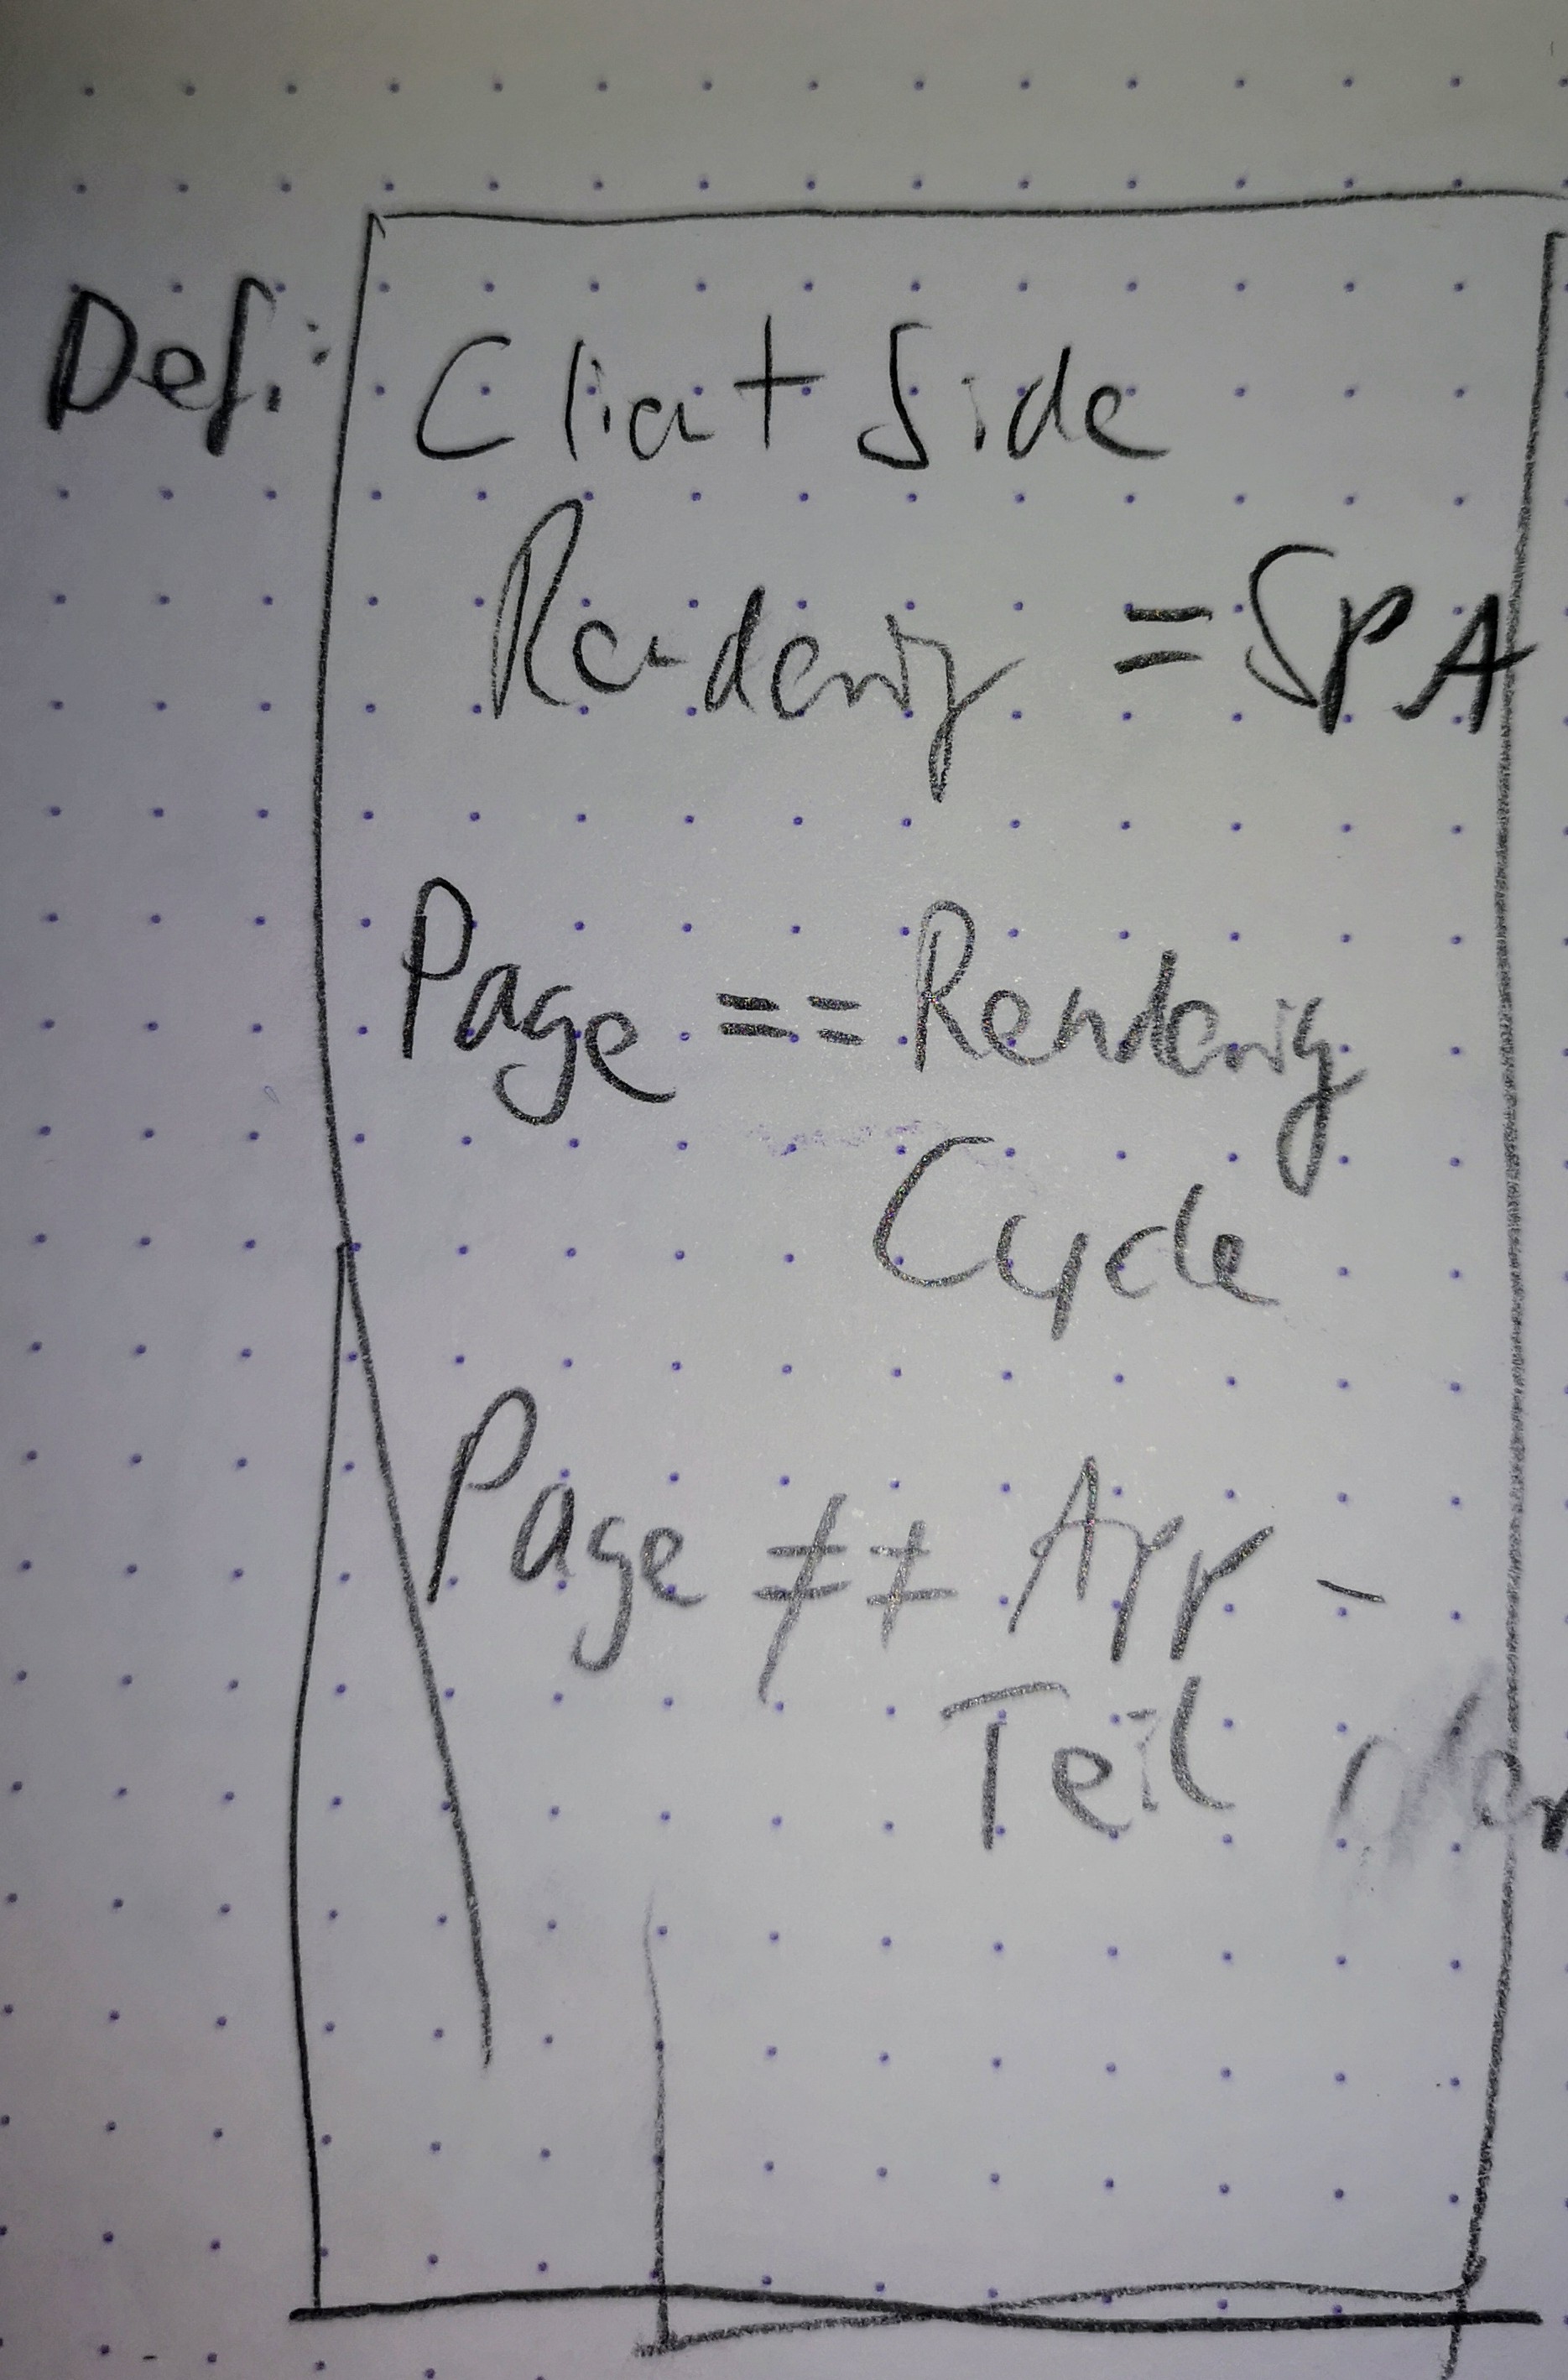 Def.: Client Side
Rendering = SPA
Page == Rendering
Cycle
Page ≠≠ App -
Teil